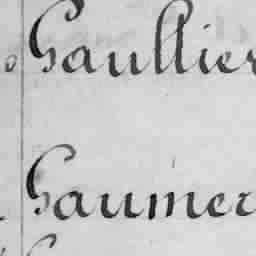 Gaullier
Gaumer